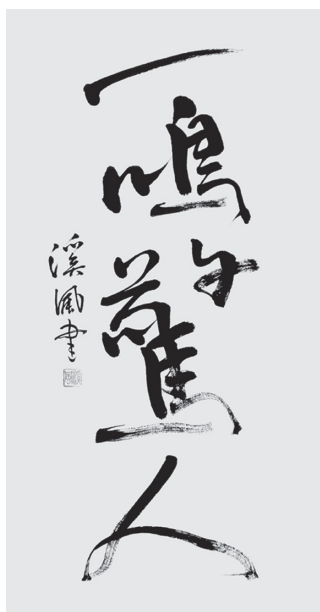 一鳴驚人
溪風書